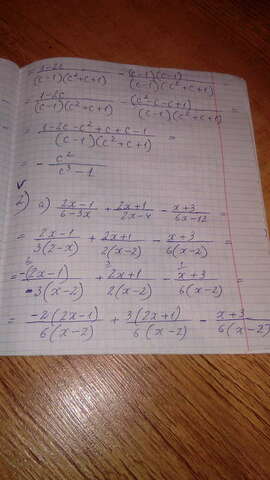 1-2c/(c-1)(c²+c+1) - (c-1)(c-1)/(c-1)(c²+c+1) =
= 1-2c/(c-1)(c²+c+1) - (c²-c-c+1)/(c-1)(c²+c+1) =
= 1-2c-c²+c+c-1/(c-1)(c²+c+1) =
= - c²/c³-1
2) a) 2x-1/6-3x + 2x+1/2x-4 - x+3/6x-12
= 2x-1/3(2-x) + 2x+1/2(x-2) - x+3/6(x-2) =
= -(2x-1)/-3(x-2) + 2x+1/2(x-2) - x+3/6(x-2) =
= -2(2x-1)/6(x-2) + 3(2x+1)/6(x-2) - x+3/6(x-2)